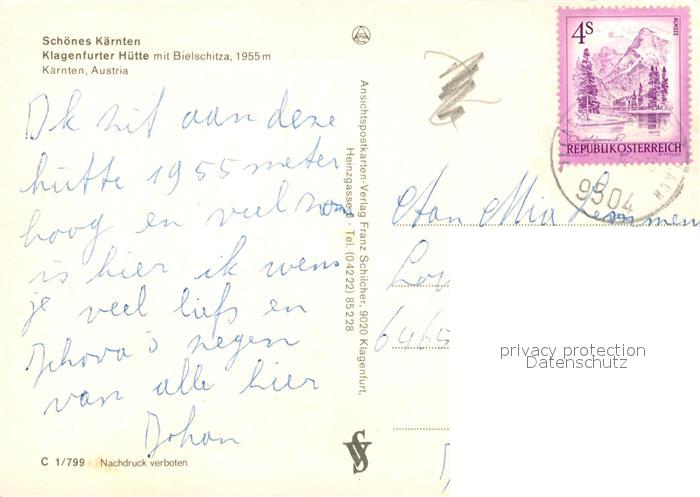 Schönes Kärnten
Klagenfurter Hütte mit Bielschitza, 1955 m
Kärnten, Austria
Ik zit aan deze
hutte 1955 meter
hoog en veel
is hier ik wens
je veel liefs en
Jehova's zegen
van alle hier
Johan
C 1/799 Nachdruck verboten
Ansichtspostkarten-Verlag Franz Schilcher, 9020 Klagenfurt,
Heinzgasse 6 - Tel. (0 42 22) 85 2 28
4S
ALMSEE
REPUBLIK ÖSTERREICH
9504
Aan Mia Lemmen
Lou
6465
privacy protection
Datenschutz